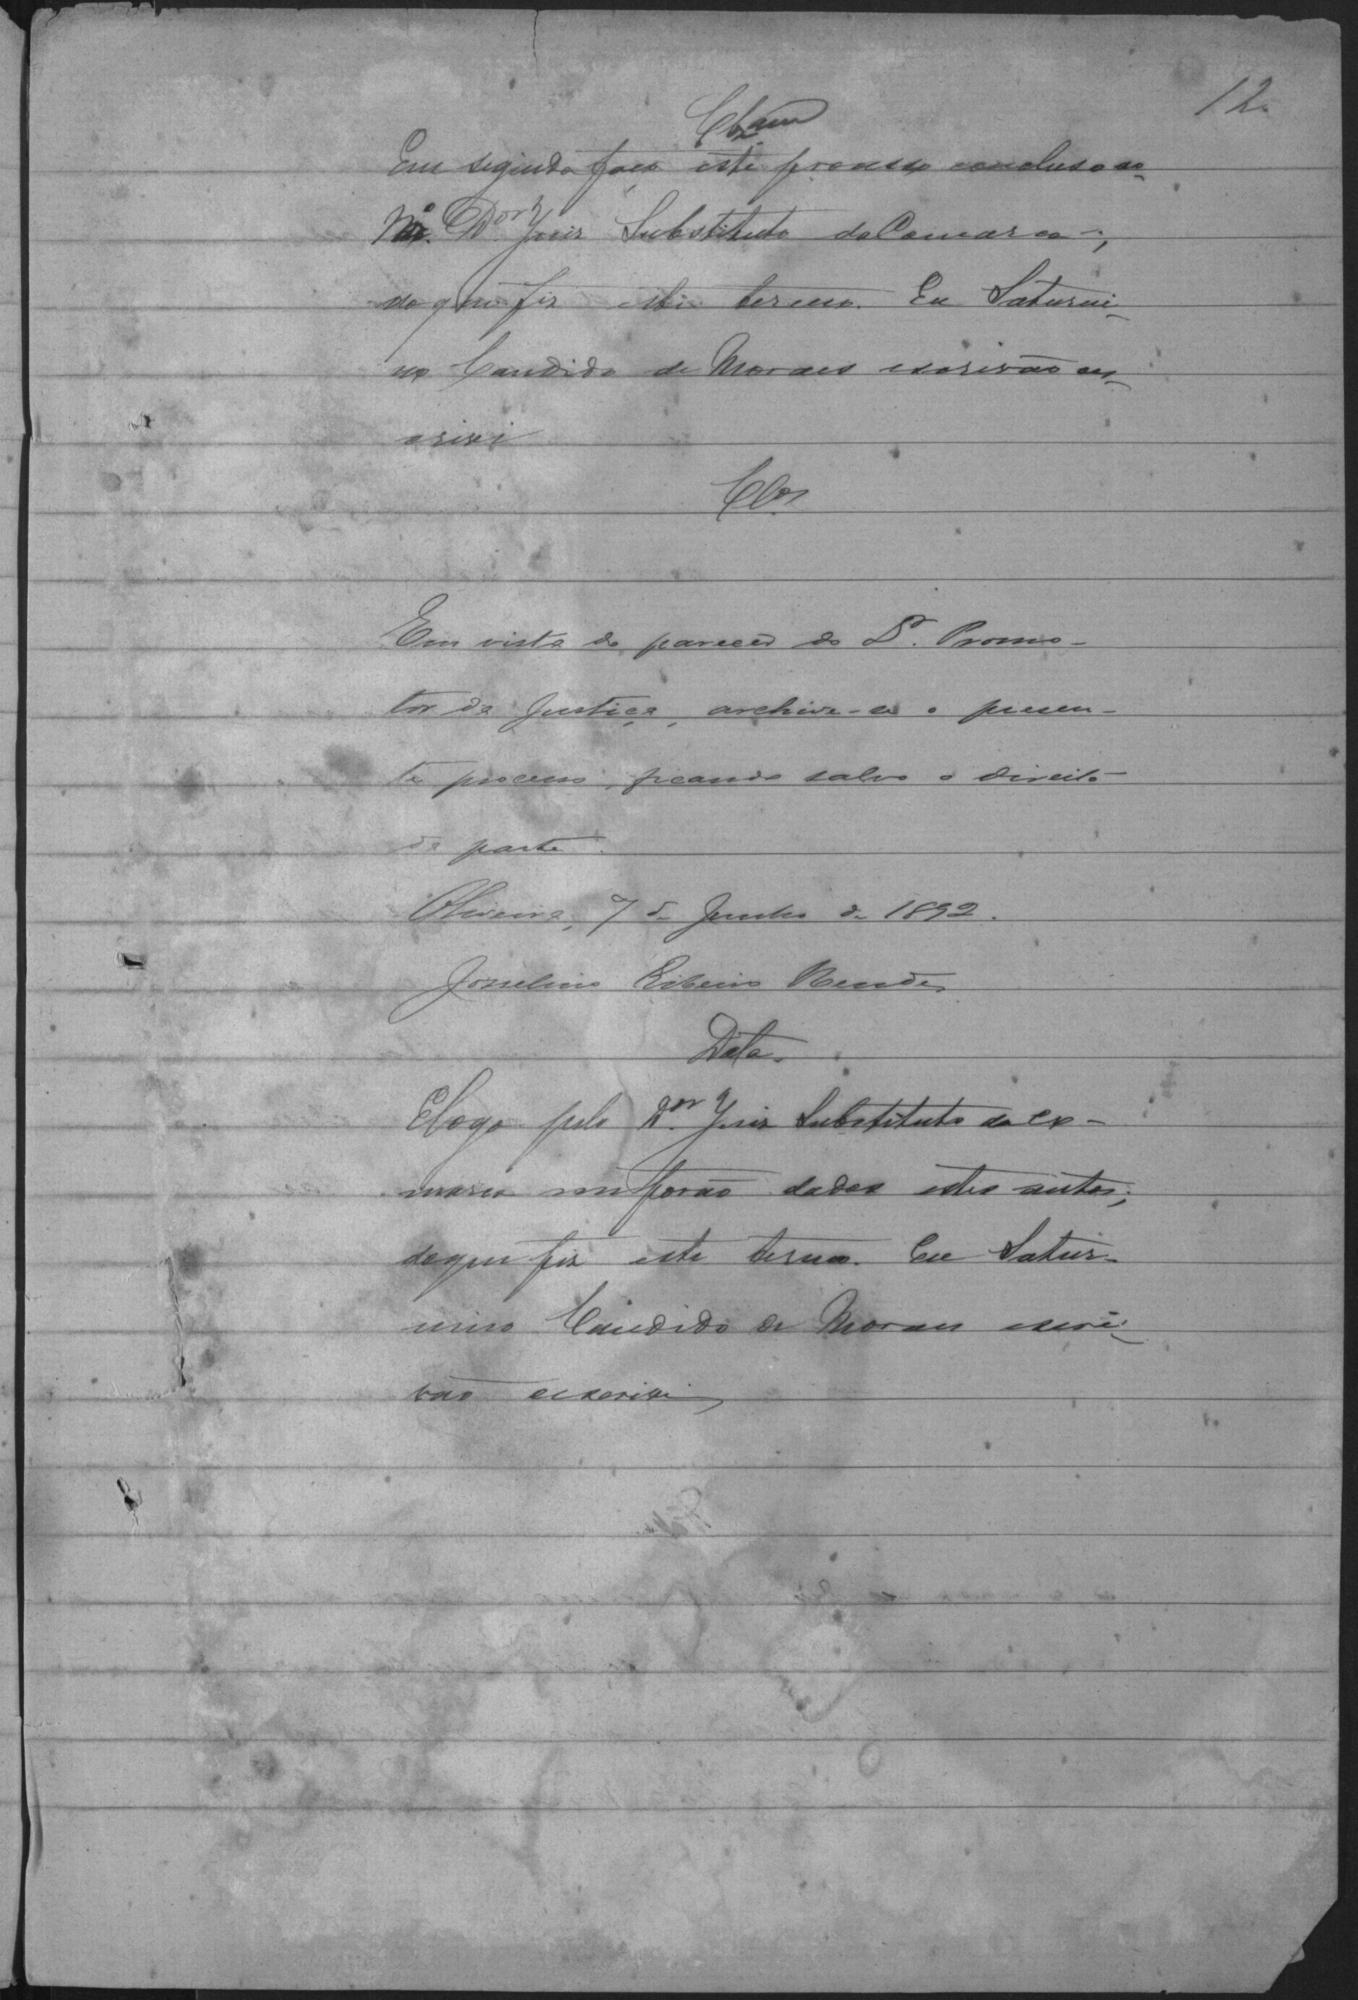 12.
Clzam
Em seguida faço este processo concluso ao
M.º D.or Juiz Substituto da Comarca,
do que fiz este termo. Eu Saturni-
no Candido de Moraes escrivão es-
crivi
Clos
Em vista do parecer do Dr. Promo-
tor da Justiça, archive-se o presen-
te processo, ficando salvo o direito
da parte.
Oliveira, 7 de Junho de 1892.
Josselino Ribeiro Mendes
Data.
E logo pelo D.or Juiz Substituto da Co-
marca me forão dados estes autos;
do que fiz este termo. Eu Satur-
nino Candido de Moraes escri-
vão escrivi